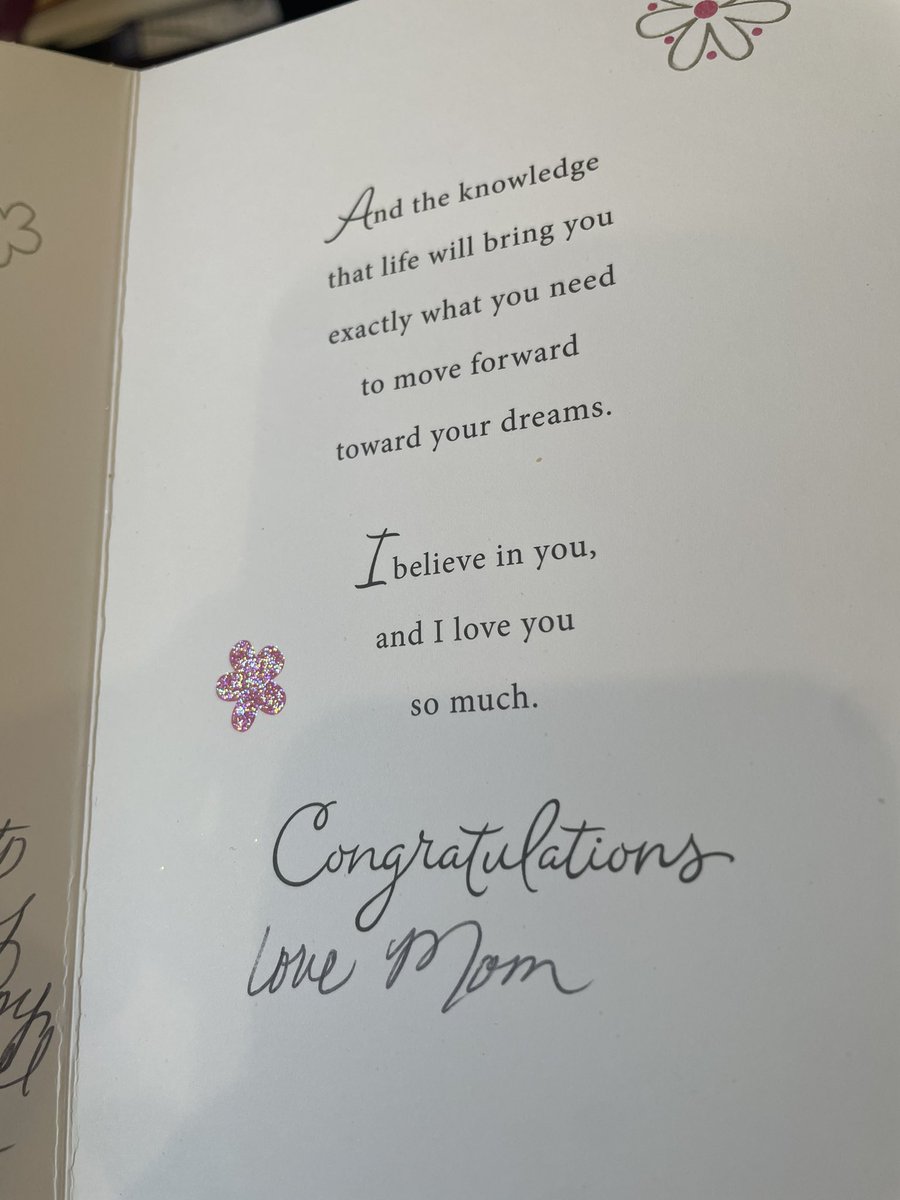 And the knowledge
that life will bring you
exactly what you need
to move forward
toward your dreams.
I believe in you,
and I love you
so much.
Congratulations
Love Mom